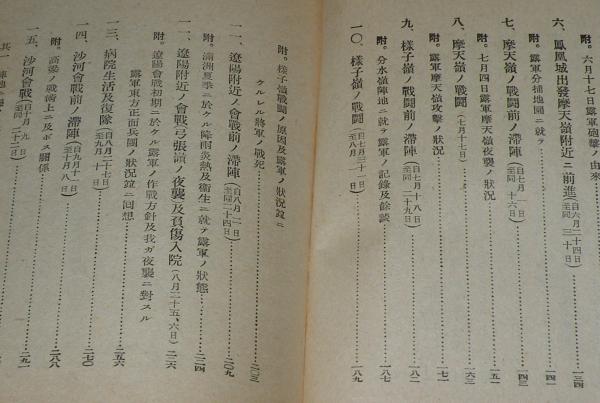 附。六月十七日露軍砲擊ノ由來
六、鳳凰城出發摩天嶺附近ニ前進(自六月二十四日至同三十日)……一三四
附。露軍分捕地圖ニ就テ……一四一
七、摩天嶺ノ戰鬪前ノ滯陣(自七月一日至同十六日)……一四三
附。七月四日露軍摩天嶺夜襲ノ狀況……一五一
八、摩天嶺ノ戰鬪(七月十七日)……一六三
附。露軍摩天嶺攻擊ノ狀況……一七一
九、樣子嶺ノ戰鬪前ノ滯陣(自七月十八日至同二十九日)……一八二
附。分水嶺陣地ニ就テ露軍ノ記錄及餘談……一八七
一〇、樣子嶺ノ戰鬪(自七月三十一日至八月)……一八九
附。樣子嶺戰鬪ノ原因及露軍ノ狀況竝ニ
クルレル將軍ノ戰死……二〇三
一一、遼陽附近ノ會戰前ノ滯陣(自八月一日至同二十四日)……二〇九
附。滿洲夏季ニ於ケル降雨炎熱及衞生ニ就テ露軍ノ狀態……二二四
一二、遼陽附近ノ會戰弓張嶺ノ夜襲及負傷入院(八月二十五、六日)……二二六
附。遼陽會戰初期ニ於ケル露軍ノ作戰方針及我ガ夜襲ニ對スル
露軍東方正面兵團ノ狀況竝ニ回想……二五六
一三、病院生活及復隊(自八月二十七日至九月十日)……二七〇
一四、沙河會戰前ノ滯陣(自九月十一日至十月八日)
附。高粱ノ戰術上ニ及ボス關係……二八八
一五、沙河會戰(自十月九日至同二十二日)……二九一
其一